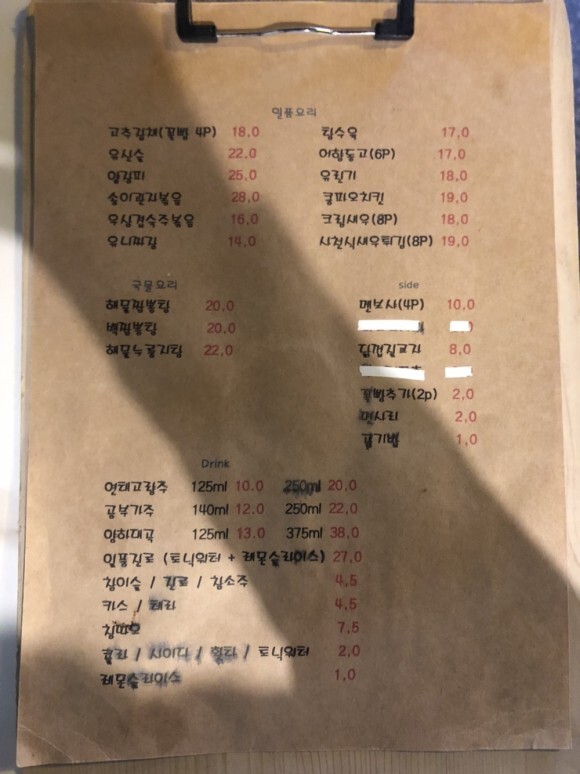 일품요리
고추잡채(꽃빵 4P) 18,0
유산슬 22,0
양장피 25,0
송이관자볶음 28,0
유산겹숙주볶음 16,0
유니짜장 14,0
탕수육 17,0
어향동고(6P) 17,0
유린기 18,0
쿵파오치킨 19,0
크림새우(8P) 18,0
사천식새우튀김(8P) 19,0
국물요리
해물짬뽕탕 20,0
백짬뽕탕 20,0
해물누룽지탕 22,0
side
멘보샤(4P) 10,0
8,0
꽃빵추가(2p) 2,0
면사리 2,0
공기밥 1,0
Drink
연태고량주 125ml 10.0 250ml 20,0
공부가주 140ml 12.0 250ml 22,0
양하대곡 125ml 13.0 375ml 38,0
일품진로 (토닉워터 + 레몬슬라이스) 27,0
참이슬 / 진로 / 청소주 4,5
카스 / 테라 4,5
칭따오 7,5
콜라 / 사이다 / 환타 / 토닉워터 2,0
레몬슬라이스 1,0